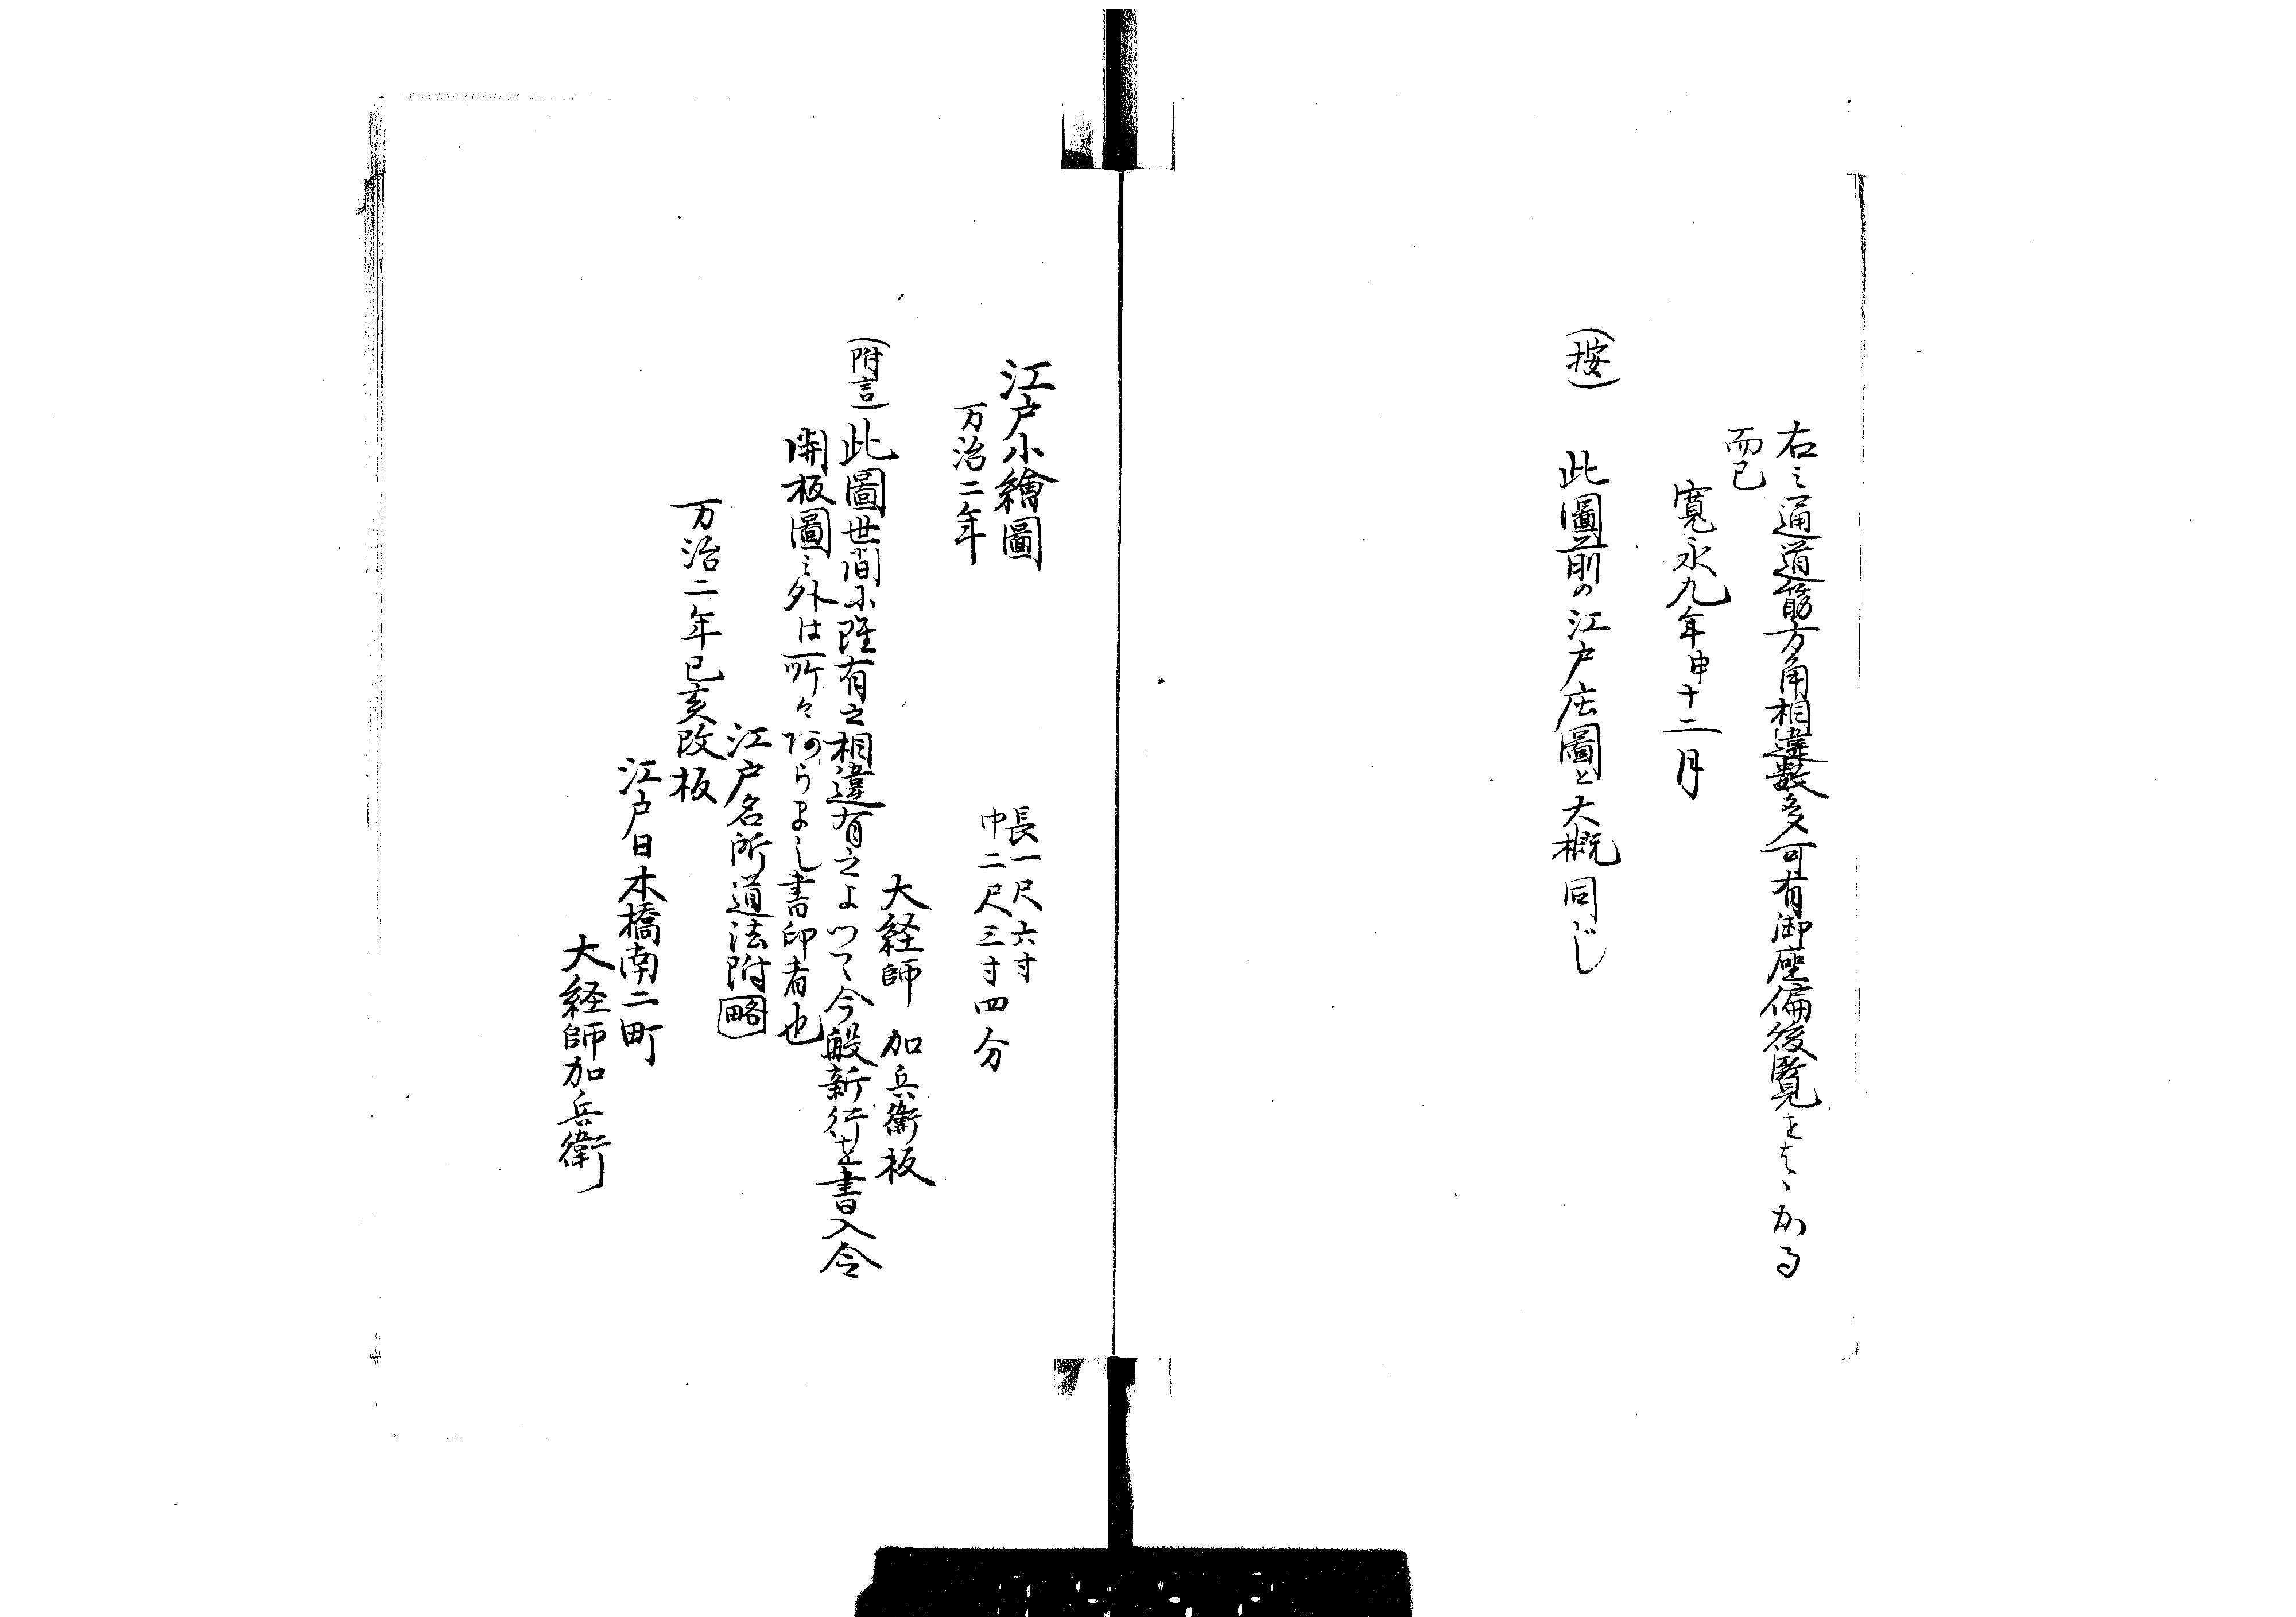 右之通道筋方角相違数多可有御座偏後覧をはゝかる
而已
寛永九年申十二月
(按) 此圖前の江戸庄圖と大概同じ
江戸小繪圖
万治二年
長一尺六寸
巾二尺三寸四分
大経師 加兵衛板
(附言)此圖世間に雖有之相違有之よつて今般新行を書入令
開板圖之外は所々阿らまし書印者也
江戸名所道法附 略
万治二年己亥改板
江戸日本橋南二町
大経師加兵衛